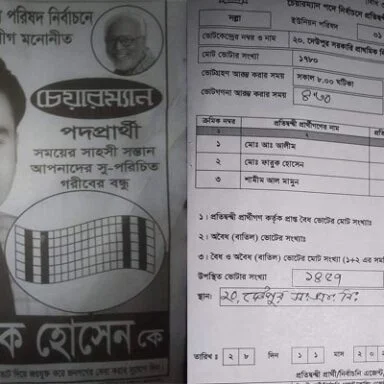 পরিষদ নির্বাচনে
লীগ মনোনীত
চেয়ারম্যান
পদপ্রার্থী
সময়ের সাহসী সন্তান
আপনাদের সু-পরিচিত
গরীবের বন্ধু
ক হোসেন কে
চেয়ারম্যান পদে নির্বাচনের
সল্লা
ইউনিয়ন পরিষদ
০১
ভোটকেন্দ্রের নাম ও নাম
২০. দেউপুর সরকারি প্রাথমিক
মোট ভোটার সংখ্যা
১৭৮০
ভোটগ্রহণ আরম্ভ করার সময়
সকাল ৮.০০ ঘটিকা
ভোটগণনা আরম্ভ করার সময়
ক্রমিক নম্বর
প্রতিদ্বন্দ্বী প্রার্থীগণের নাম
১
২
১
মোঃ আঃ আলীম
২
মোঃ ফারুক হোসেন
৩
শামীম আল মামুন
১। প্রতিদ্বন্দ্বী প্রার্থীগণ কর্তৃক প্রাপ্ত বৈধ ভোটের মোট সংখ্যাঃ
২। অবৈধ (বাতিল) ভোটের সংখ্যাঃ
৩। বৈধ ও অবৈধ (বাতিল) ভোটের মোট সংখ্যা (১+২ এর সম
উপস্থিত ভোটার সংখ্যা
স্থান:
তারিখ :
২ ৮
দিন
১ ১
মাস
২ ০ ২
প্রতিদ্বন্দ্বী প্রার্থী/নির্বাচনি এজেন্ট,